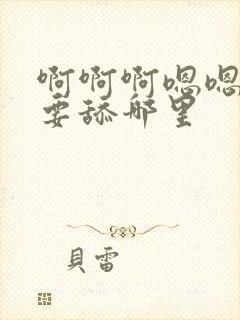 啊啊啊嗯嗯
要舔那里
貝雷